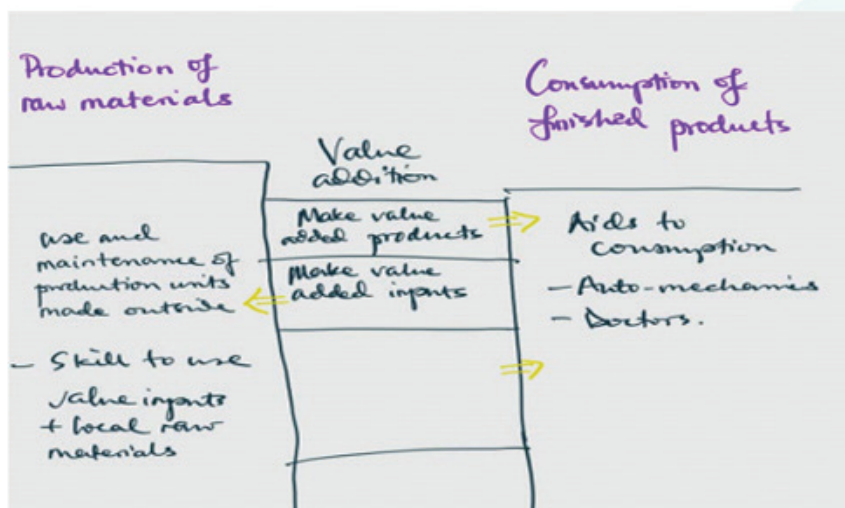 Production of
raw materials
use and
maintenance of
production units
made outside
- Skill to use
value inputs
+ local raw
materials
Value
addition
Make value
added products
Make value
added inputs
Consumption of
finished products
Aids to
consumption
- Auto-mechanics
- Doctors.